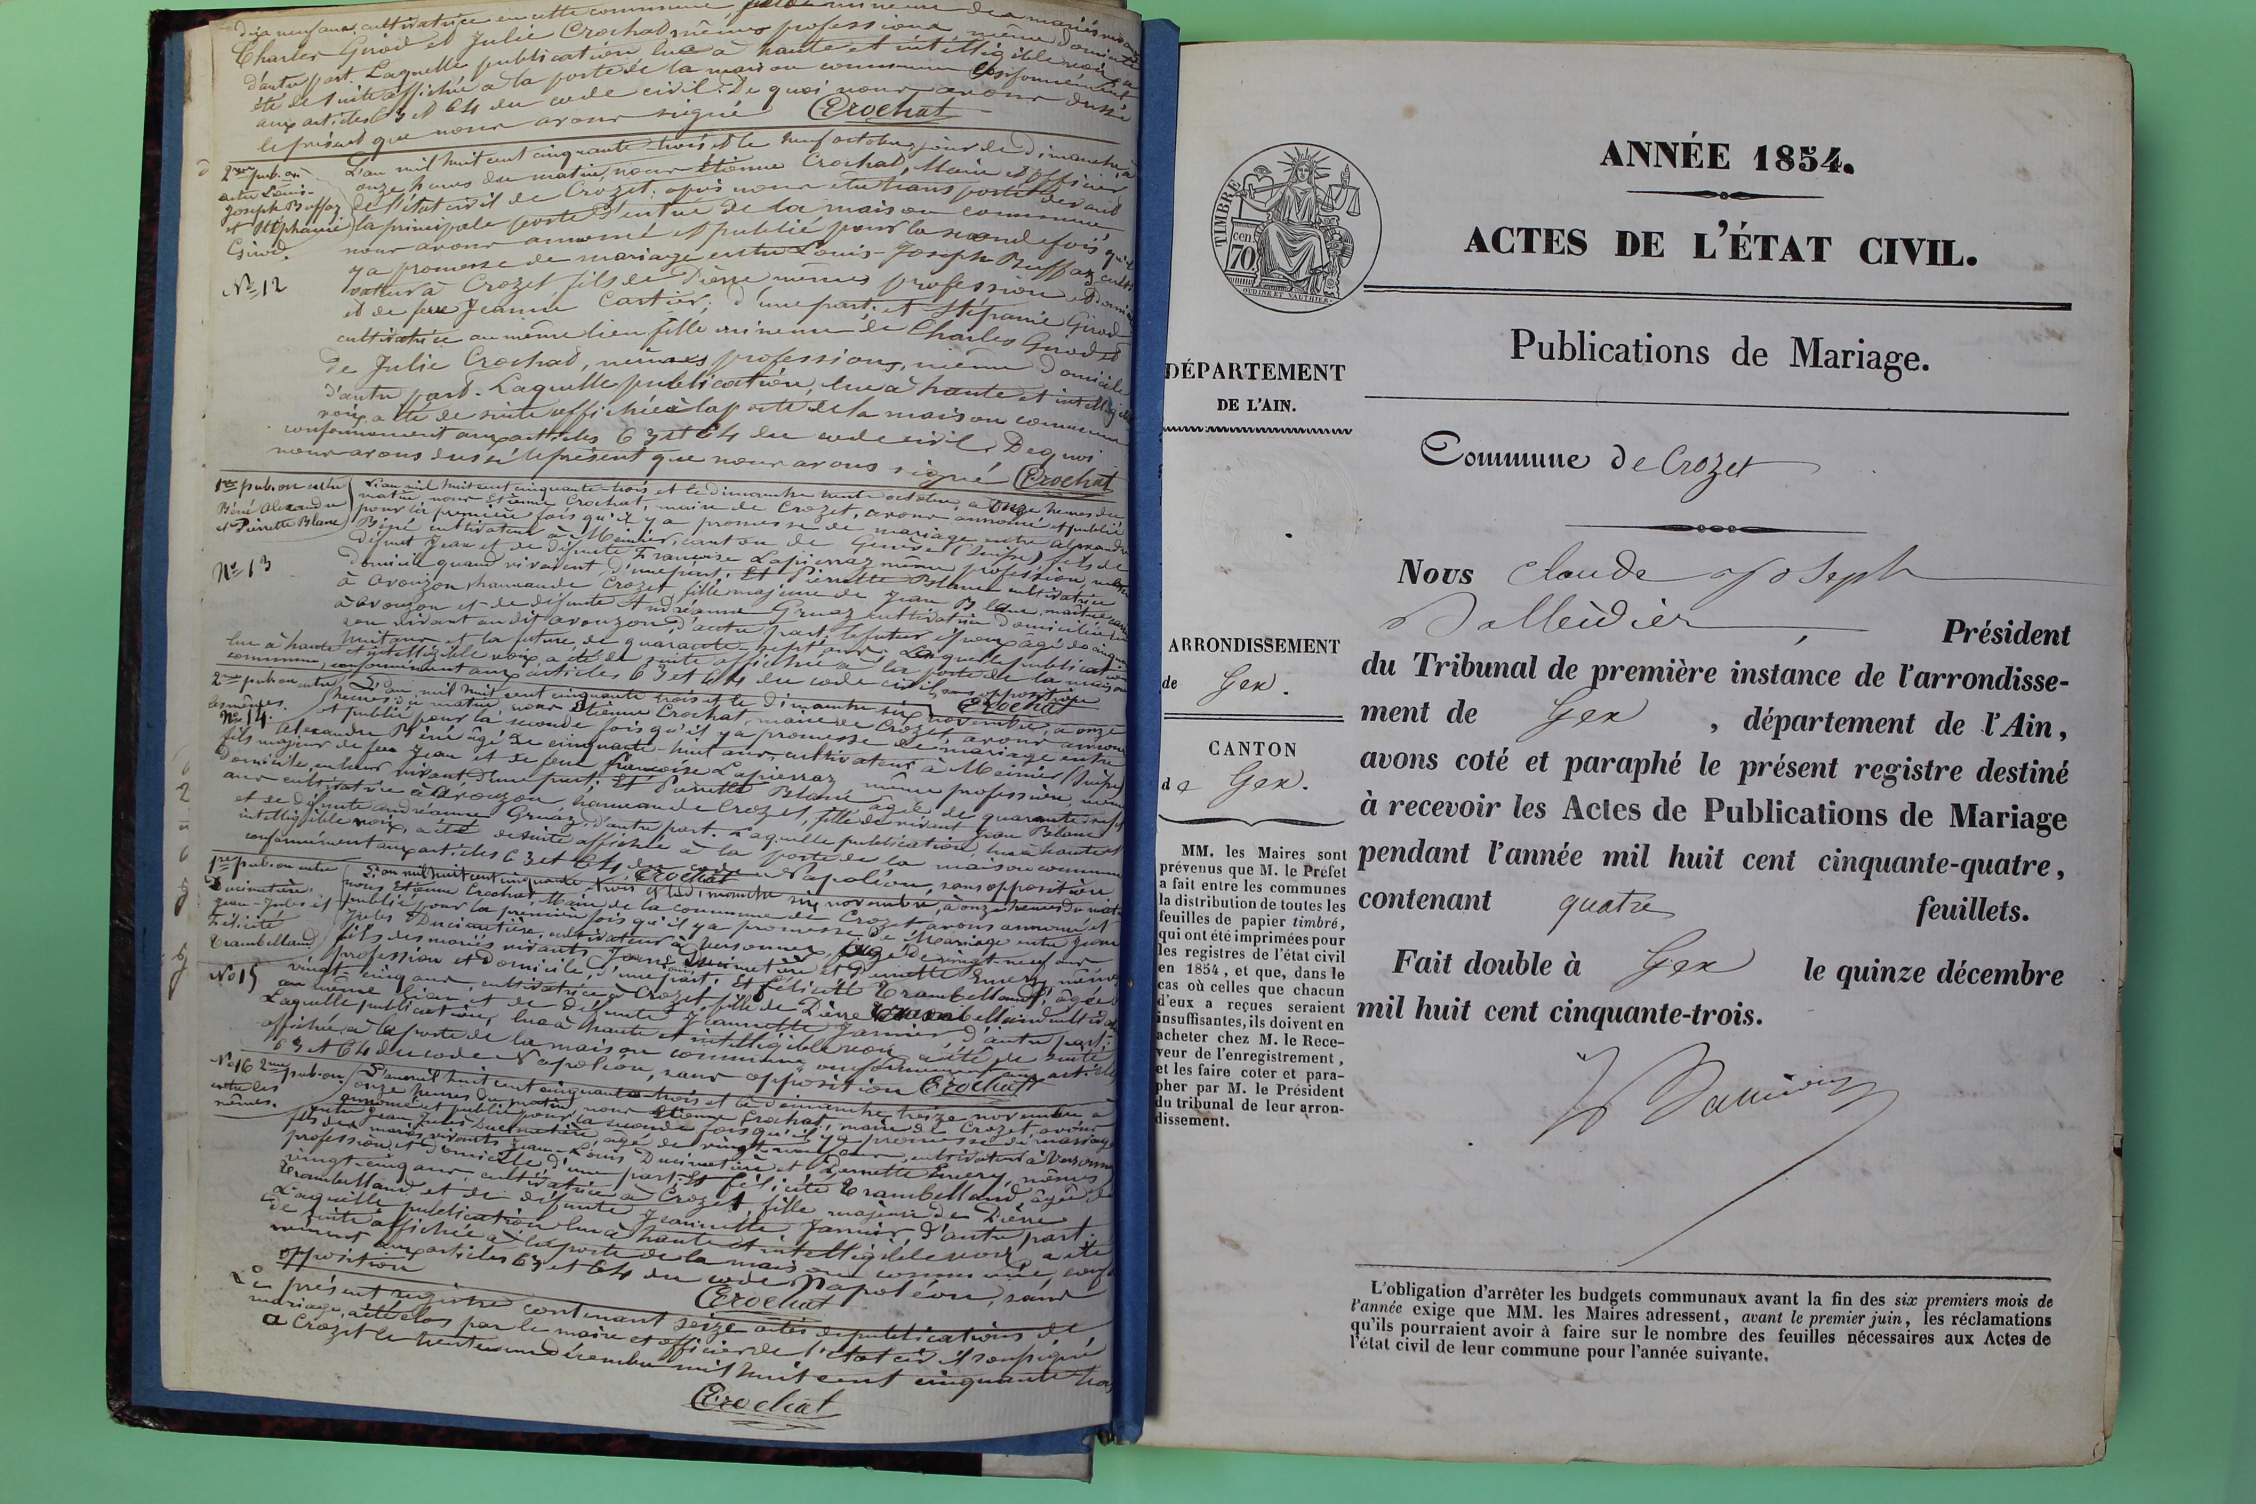 déjà neuf ans, cultivatrice en cette commune, fille mineure des mariés
Charles Girod et Julie Crochat, mêmes professions, même domicile
d'autre part. Laquelle publication lue à haute et intelligible voix, a
été de suite affichée à la porte de la maison commune conformément
aux articles 63 et 64 du code civil. De quoi nous avons dressé
le présent que nous avons signé Crochat
2me pub. on
entre Louis-
Joseph Buffaz
et Stéphanie
Girod.
No 12
L'an mil huit cent cinquante-trois et le neuf octobre, jour de dimanche, à
onze heures du matin, nous Etienne Crochat, Maire et officier
de l'état civil de Crozet, après nous être transporté devant
la principale porte d'entrée de la maison commune,
nous avons annoncé et publié pour la seconde fois qu'il
y a promesse de mariage entre Louis-Joseph Buffaz, culti-
vateur à Crozet fils de Pierre mêmes profession et domicile
et de feue Jeanne Cartier, d'une part; et Stéphanie Girod
cultivatrice au même lieu fille mineure de Charles Girod et
de Julie Crochat, mêmes professions, même domicile
d'autre part. Laquelle publication, lue à haute et intelligible
voix, a été de suite affichée à la porte de la maison commune
conformément aux articles 63 et 64 du code civil. De quoi
nous avons dressé le présent que nous avons signé Crochat
1re pub.on entre
Béné Alexandre
et Pierrette Blanc
No 13
L'an mil huit cent cinquante-trois et le dimanche trente octobre, à onze heures du
matin, nous Etienne Crochat, maire de Crozet, avons annoncé et publié
pour la première fois qu'il y a promesse de mariage entre Alexandre
Béné cultivateur à Meinier, canton de Genève (Suisse) fils de
défunt Jean et de défunte Françoise Lapierraz même profession, même
domicile quand vivaient, d'une part; Et Pierrette Blanc cultivatrice
à Avouzon, hameau de Crozet, fille majeure de Jean Blanc,
à Avouzon et de défunte Andréanne Gruaz cultivatrice domiciliée
son vivant au dit Avouzon, d'autre part, le futur époux âgé de cinquante
huit ans et la future, de quarante-sept ans. Laquelle publication
lue à haute et intelligible voix, a été de suite affichée à la porte de la maison
commune, conformément aux articles 63 et 64 du code civil, sans opposition
Crochat
2me pub.on entre
les mêmes.
No 14.
L'an mil huit cent cinquante trois et le dimanche six novembre, à onze
heures du matin, nous Etienne Crochat, maire de Crozet, avons annoncé
et publié pour la seconde fois qu'il y a promesse de mariage entre
Alexandre Béné âgé de cinquante-huit ans, cultivateur à Meinier (Suisse)
fils majeur de feu Jean et de feue Françoise Lapierraz même profession, même
domicile, en leur vivant d'une part; Et Pierrette Blanc âgée de quarante sept
ans cultivatrice à Avouzon, hameau de Crozet, fille de vivant Jean Blanc
et de défunte Andréanne Gruaz, d'autre part. Laquelle publication, lue à haute et
intelligible voix, a été de suite affichée à la porte de la maison commune
conformément aux articles 63 et 64 du code Napoléon, sans opposition
Crochat
1re pub.on entre
Ducimetière
Jean-Jules et
Félicité
Trambelland
No 15
L'an mil huit cent cinquante trois et le dimanche six novembre, à onze heures du matin
nous Etienne Crochat, Maire de la commune de Crozet, avons annoncé et
publié pour la première fois qu'il y a promesse de Mariage entre Jean
Jules Ducimetière, cultivateur à Versonnex, âgé de vingt-neuf ans
fils des mariés vivants Jean-Louis Ducimetière et Pernette Emery, mêmes
profession et domicile, d'une part; Et Félicité Trambelland, âgée de
vingt-cinq ans, cultivatrice à Crozet, fille de Pierre Trambelland cultivateur
au même lieu et de défunte Jeannette Janvier, d'autre part.
Laquelle publication, lue à haute et intelligible voix a été de suite
affichée à la porte de la maison commune conformément aux articles
63 et 64 du code Napoléon, sans opposition Crochat
No 16 2me pub.on
entre les
mêmes.
L'an mil huit cent cinquante trois et le dimanche treize novembre à
onze heures du matin, nous Etienne Crochat, maire de Crozet avons
annoncé et publié pour la seconde fois qu'il y a promesse de mariage
entre Jean Jules Ducimetière, âgé de vingt neuf ans, cultivateur à Versonnex
fils des mariés vivants Jean-Louis Ducimetière et Pernette Emery, mêmes
profession et domicile, d'une part; Et Félicité Trambelland âgée de
vingt-cinq ans, cultivatrice à Crozet, fille majeure de Pierre
Trambelland et de défunte Jeannette Janvier, d'autre part.
Laquelle publication lue à haute et intelligible voix, a été
de suite affichée à la porte de la maison commune, confor
mément aux articles 63 et 64 du code Napoléon, sans
opposition Crochat
Le présent registre contenant seize actes de publications de
mariage, a été clos par le maire et officier de l'état civil soussigné
à Crozet le trente un décembre mil huit cent cinquante trois
Crochat
ANNÉE 1854.
ACTES DE L'ÉTAT CIVIL.
TIMBRE
cen
70.
OUDINE ET VAUTHIER.
Publications de Mariage.
DÉPARTEMENT
DE L'AIN.
Commune de Crozet
ARRONDISSEMENT
de Gex.
CANTON
de Gex.
MM. les Maires sont
prévenus que M. le Préfet
a fait entre les communes
la distribution de toutes les
feuilles de papier timbré,
qui ont été imprimées pour
les registres de l'état civil
en 1854, et que, dans le
cas où celles que chacun
d'eux a reçues seraient
insuffisantes, ils doivent en
acheter chez M. le Rece-
veur de l'enregistrement,
et les faire coter et para-
pher par M. le Président
du tribunal de leur arron-
dissement.
Nous Claude Joseph
Président
du Tribunal de première instance de l'arrondisse-
ment de Gex, département de l'Ain,
avons coté et paraphé le présent registre destiné
à recevoir les Actes de Publications de Mariage
pendant l'année mil huit cent cinquante-quatre,
contenant quatre feuillets.
Fait double à Gex le quinze décembre
mil huit cent cinquante-trois.
L'obligation d'arrêter les budgets communaux avant la fin des six premiers mois de
l'année exige que MM. les Maires adressent, avant le premier juin, les réclamations
qu'ils pourraient avoir à faire sur le nombre des feuilles nécessaires aux Actes de
l'état civil de leur commune pour l'année suivante.